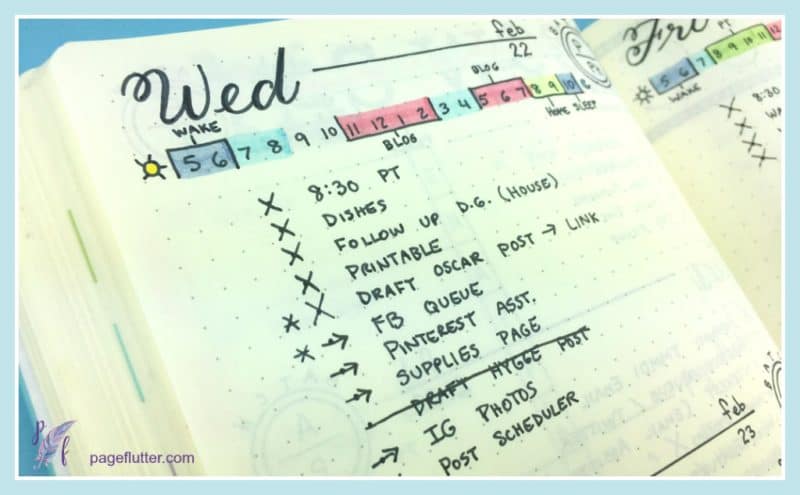 Wed
feb
22
WAKE
BLOG
5 6 7 8 9 10 11 12 1 2 3 4 5 6 7 8 9 10
BLOG
HOME SLEEP
X 8:30 PT
X DISHES
X FOLLOW UP D.G. (HOUSE)
X PRINTABLE
* X DRAFT OSCAR POST → LINK
* → FB QUEUE
→ PINTEREST ASST.
→ SUPPLIES PAGE
DRAFT HYGGE POST
→ IG PHOTOS
POST SCHEDULER
feb
23
Fri
PT
5 6 7 8 9 10 11 12
WAKE
X 8:30
X
X
X
Pf
pageflutter.com